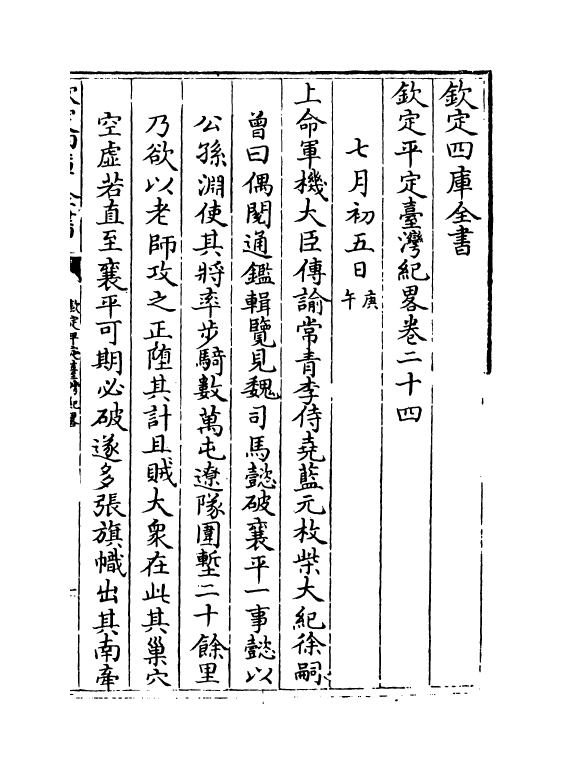 欽定四庫全書
欽定平定臺灣紀畧卷二十四
七月初五日庚午
上命軍機大臣傳諭常青李侍堯藍元枚柴大紀徐嗣
曾曰偶閱通鑑輯覽見魏司馬懿破襄平一事懿以
公孫淵使其將率步騎數萬屯遼隊圍塹二十餘里
乃欲以老師攻之正墮其計且賊大衆在此其巢穴
空虛若直至襄平可期必破遂多張旗幟出其南牽